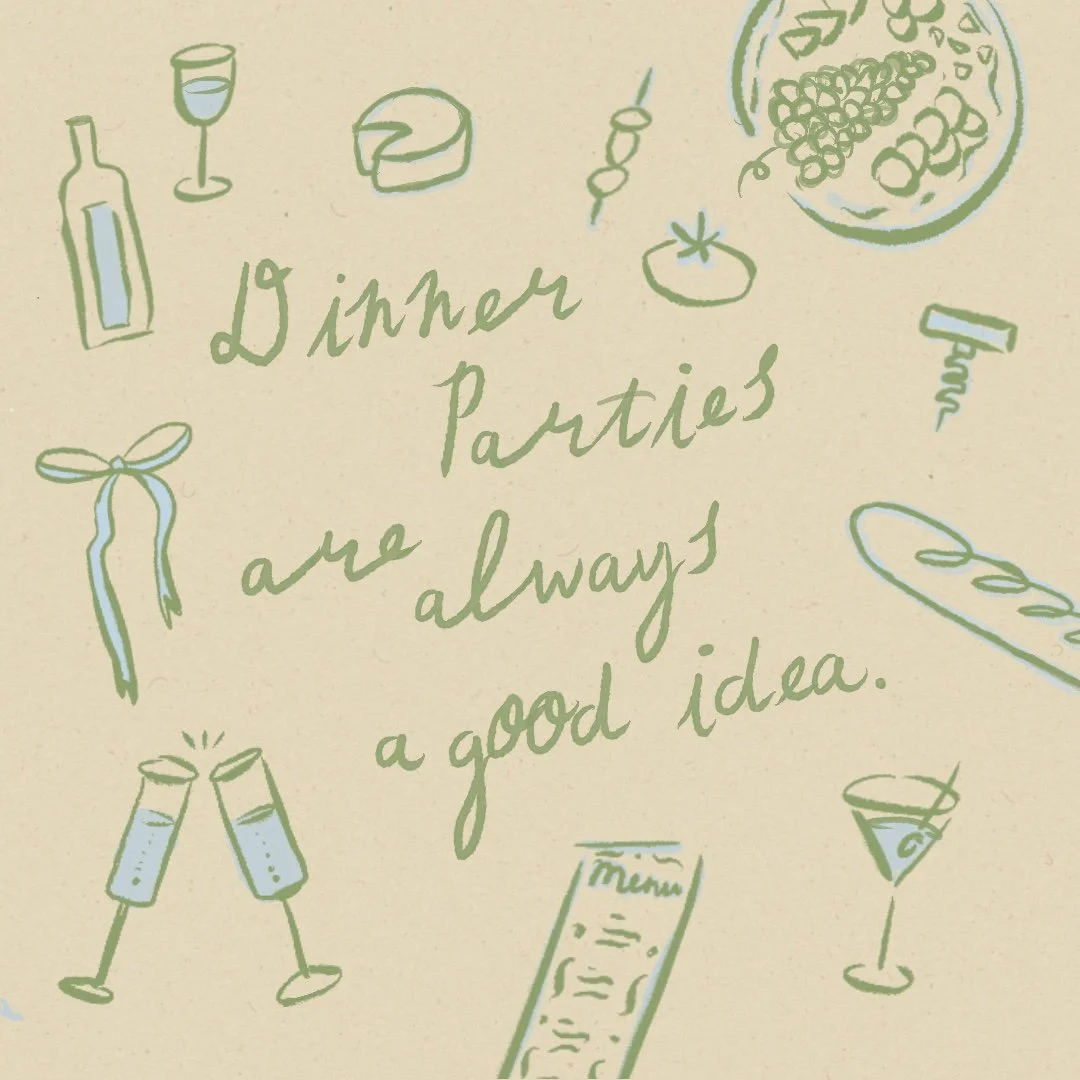 Dinner
Parties
are always
a good idea.
Menu